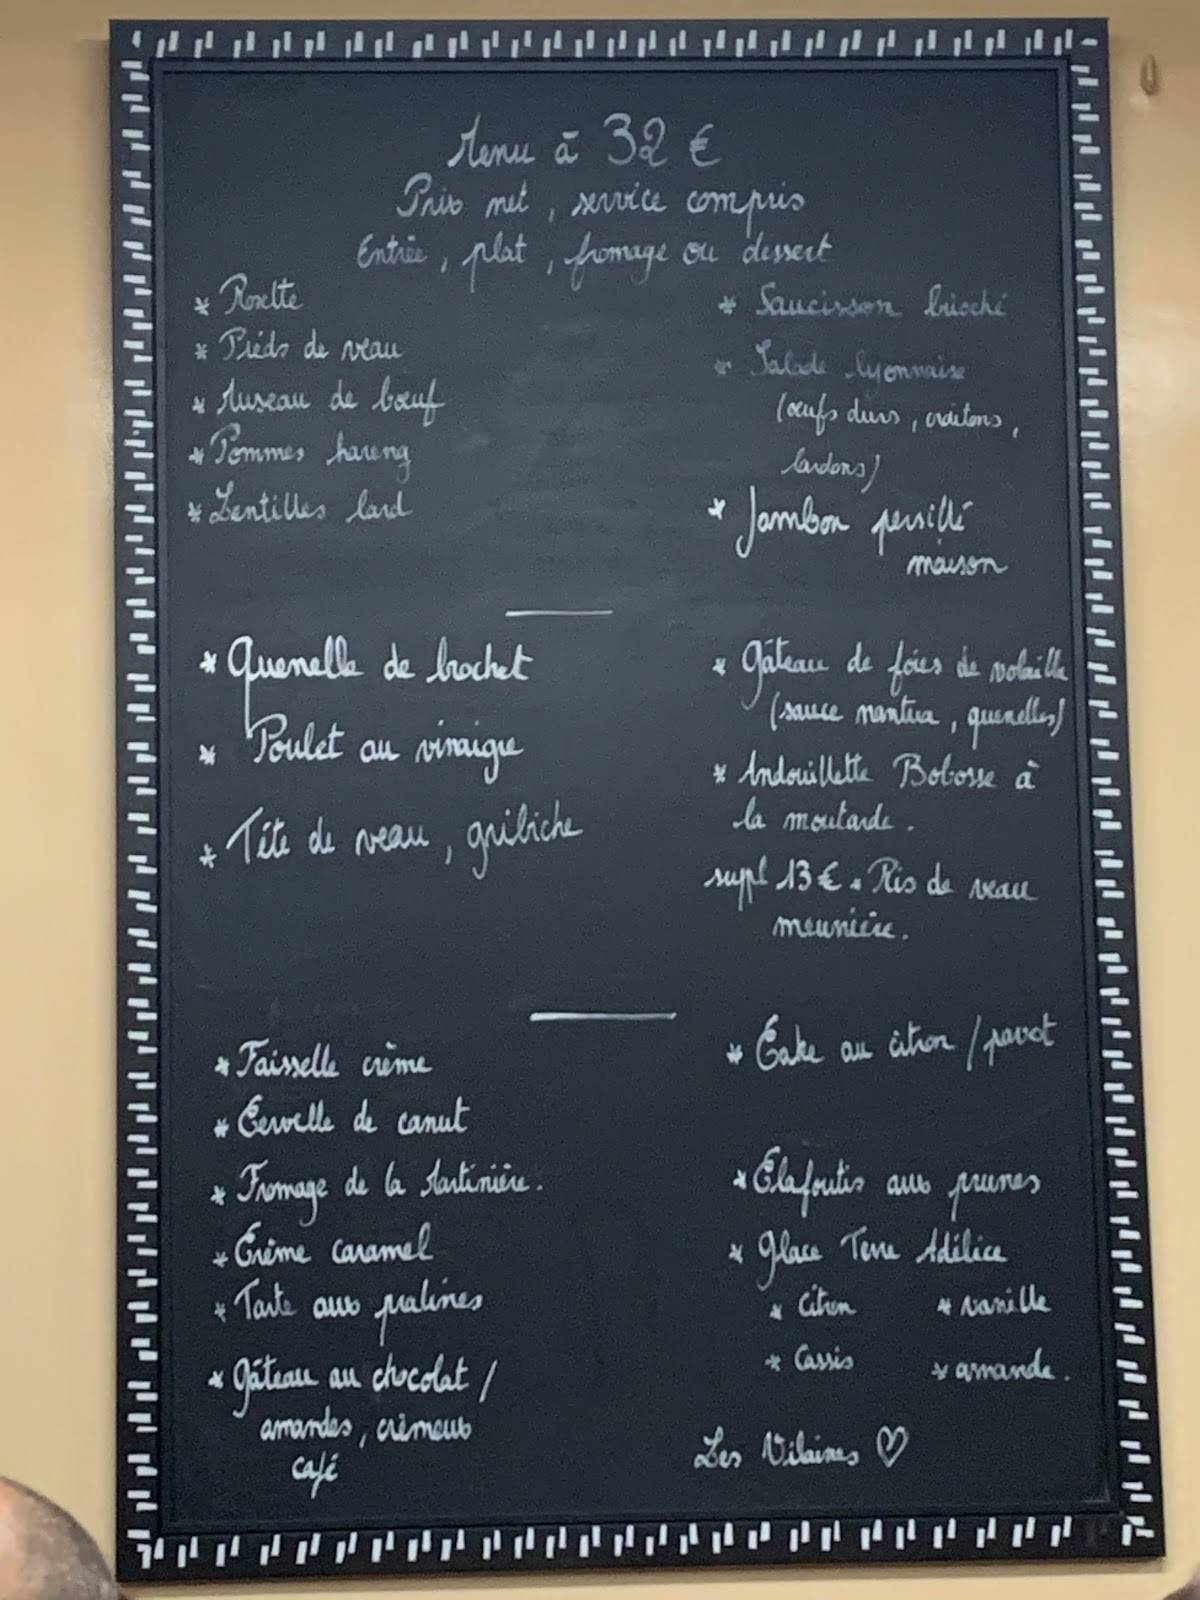 Menu à 32 €
Prix net, service compris
Entrée, plat, fromage ou dessert
* Rosette
* Pieds de veau
* Museau de bœuf
* Pommes hareng
* Lentilles lard
* Saucisson brioché
* Salade lyonnaise
(œufs durs, croûtons,
lardons)
* Jambon persillé
maison
* Quenelle de brochet
* Poulet au vinaigre
* Tête de veau, gribiche
* Gâteau de foies de volaille
(sauce nantua, quenelles)
* Andouillette Bobosse à
la moutarde.
suppl 13 € * Ris de veau
meunière.
* Faisselle crème
* Cervelle de canut
* Fromage de la Martinière.
* Crème caramel
* Tarte aux pralines
* Gâteau au chocolat /
amandes, crèmeux
café
* Cake au citron / pavot
* Clafoutis aux prunes
* Glace Terre Adélice
* Citron * vanille
* Cassis * amande.
Les Vilaines ♡